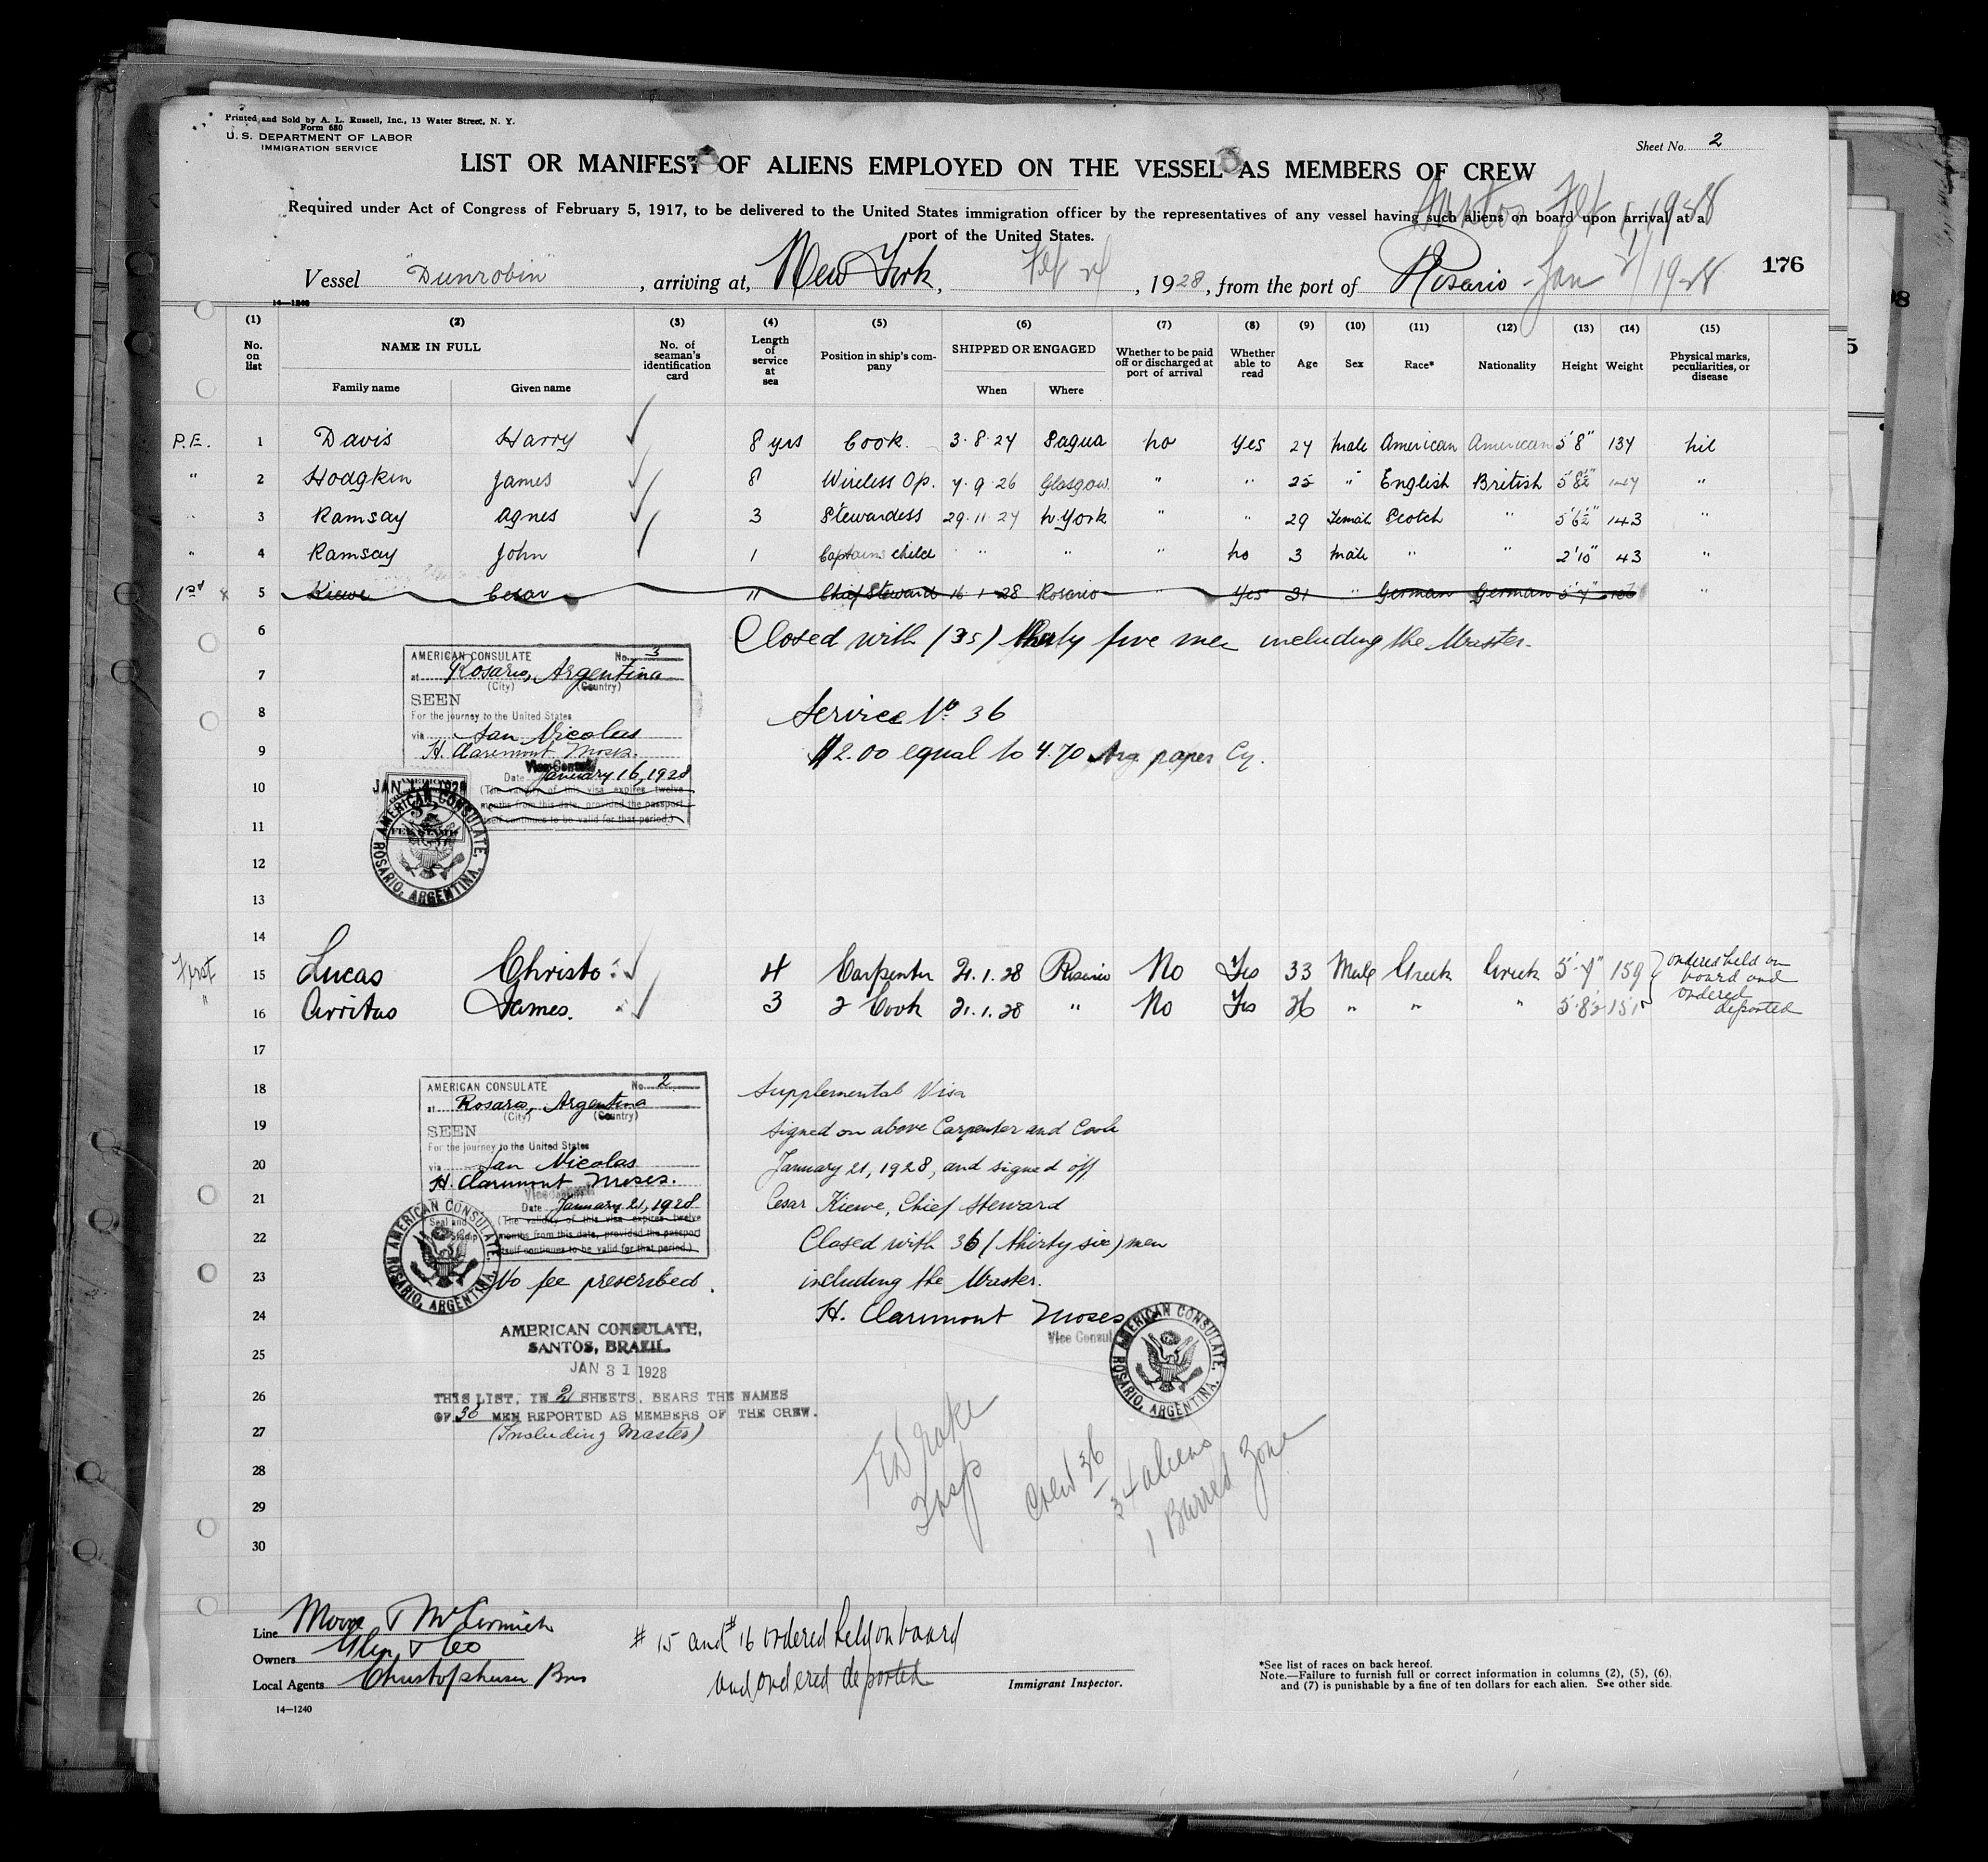 Printed and Sold by A. L. Russell, Inc., 13 Water Street, N. Y.
Form 680
U. S. DEPARTMENT OF LABOR
IMMIGRATION SERVICE
Sheet No. 2
LIST OR MANIFEST OF ALIENS EMPLOYED ON THE VESSEL AS MEMBERS OF CREW
Santos Feb 1, 1928
Required under Act of Congress of February 5, 1917, to be delivered to the United States immigration officer by the representatives of any vessel having such aliens on board upon arrival at a
port of the United States.
Vessel "Dunrobin", arriving at, New York, Feb 24, 1928, from the port of Rosario - Jan 21 1928
176
14—1240
(1) (2) (3) (4) (5) (6) (7) (8) (9) (10) (11) (12) (13) (14) (15)
No. on list NAME IN FULL Family name Given name No. of seaman's identification card Length of service at sea Position in ship's company SHIPPED OR ENGAGED When Where Whether to be paid off or discharged at port of arrival Whether able to read Age Sex Race* Nationality Height Weight Physical marks, peculiarities, or disease
P.E. 1 Davis Harry 8 yrs Cook. 3.8.27 Sagua no yes 27 male American American 5'8" 137 nil
" 2 Hodgkin James 8 Wireless Op. 7.9.26 Glasgow " " 25 " English British 5'8½" 147 "
" 3 Ramsay Agnes 3 Stewardess 29.11.27 N. York " " 29 Female Scotch " 5'6½" 143 "
" 4 Ramsay John 1 Captains child " " " no 3 male " " 2'10" 43 "
1st x 5 Kiewe Cesar 11 Chief Steward 16.1.28 Rosario " Yes 31 " German German 5'7" "
6 Closed with (35) thirty five men including the Master.
AMERICAN CONSULATE No. 3
7 at Rosario, Argentina
(City) (Country)
SEEN
8 Service No 36
For the journey to the United States
via San Nicolas
9 $2.00 equal to 4.70 Arg. paper Cy.
H. Claremont Moses.
Vice Consul
Date January 16, 1928
10 (The validity of this visa expires twelve
months from this date, provided the passport
11 itself continues to be valid for that period.)
AMERICAN CONSULATE, ROSARIO, ARGENTINA.
FEE STAMP
12
13
14
First 15 Lucas Christo 4 Carpenter 21.1.28 Rosario No Yes 33 Male Greek Greek 5'-7" 159 ordered held on board and ordered deported
" 16 Arritas James. 3 2 Cook 21.1.28 " No Yes 26 " " " 5'8½ 151
17
AMERICAN CONSULATE No. 2
18 Supplemental Visa
at Rosario, Argentina
(City) (Country)
19 signed on above Carpenter and Cook
SEEN
For the journey to the United States
20 January 21, 1928, and signed off
via San Nicolas
H. Claremont Moses.
Vice Consul
21 Cesar Kiewe, Chief Steward
Date January 21, 1928
Seal and Stamp
(The validity of this visa expires twelve
22 Closed with 36 (thirty six) men
months from this date, provided the passport
itself continues to be valid for that period.)
AMERICAN CONSULATE, ROSARIO, ARGENTINA.
23 including the Master.
No fee prescribed.
24 H. Claremont Moses
Vice Consul
AMERICAN CONSULATE, ROSARIO, ARGENTINA.
AMERICAN CONSULATE,
SANTOS, BRAZIL.
25
JAN 31 1928
26 THIS LIST, IN 2 SHEETS, BEARS THE NAMES
OF 36 MEN REPORTED AS MEMBERS OF THE CREW.
27 (Including Master)
28
Insp
Crew 36
34 aliens
1 Barred Zone
29
30
Line Moore & McCormick
Owners Glen & Co
Local Agents Christophersen Bros
14—1240
# 15 and # 16 ordered held on board
and ordered deported
Immigrant Inspector.
*See list of races on back hereof.
Note.—Failure to furnish full or correct information in columns (2), (5), (6),
and (7) is punishable by a fine of ten dollars for each alien. See other side.